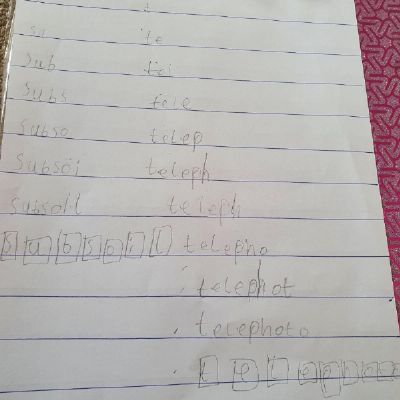 t
su te
sub tel
subs tele
subso telep
subsoi teleph
subsoil teleph
subsoil telepho
telephot
telephoto
telephoto